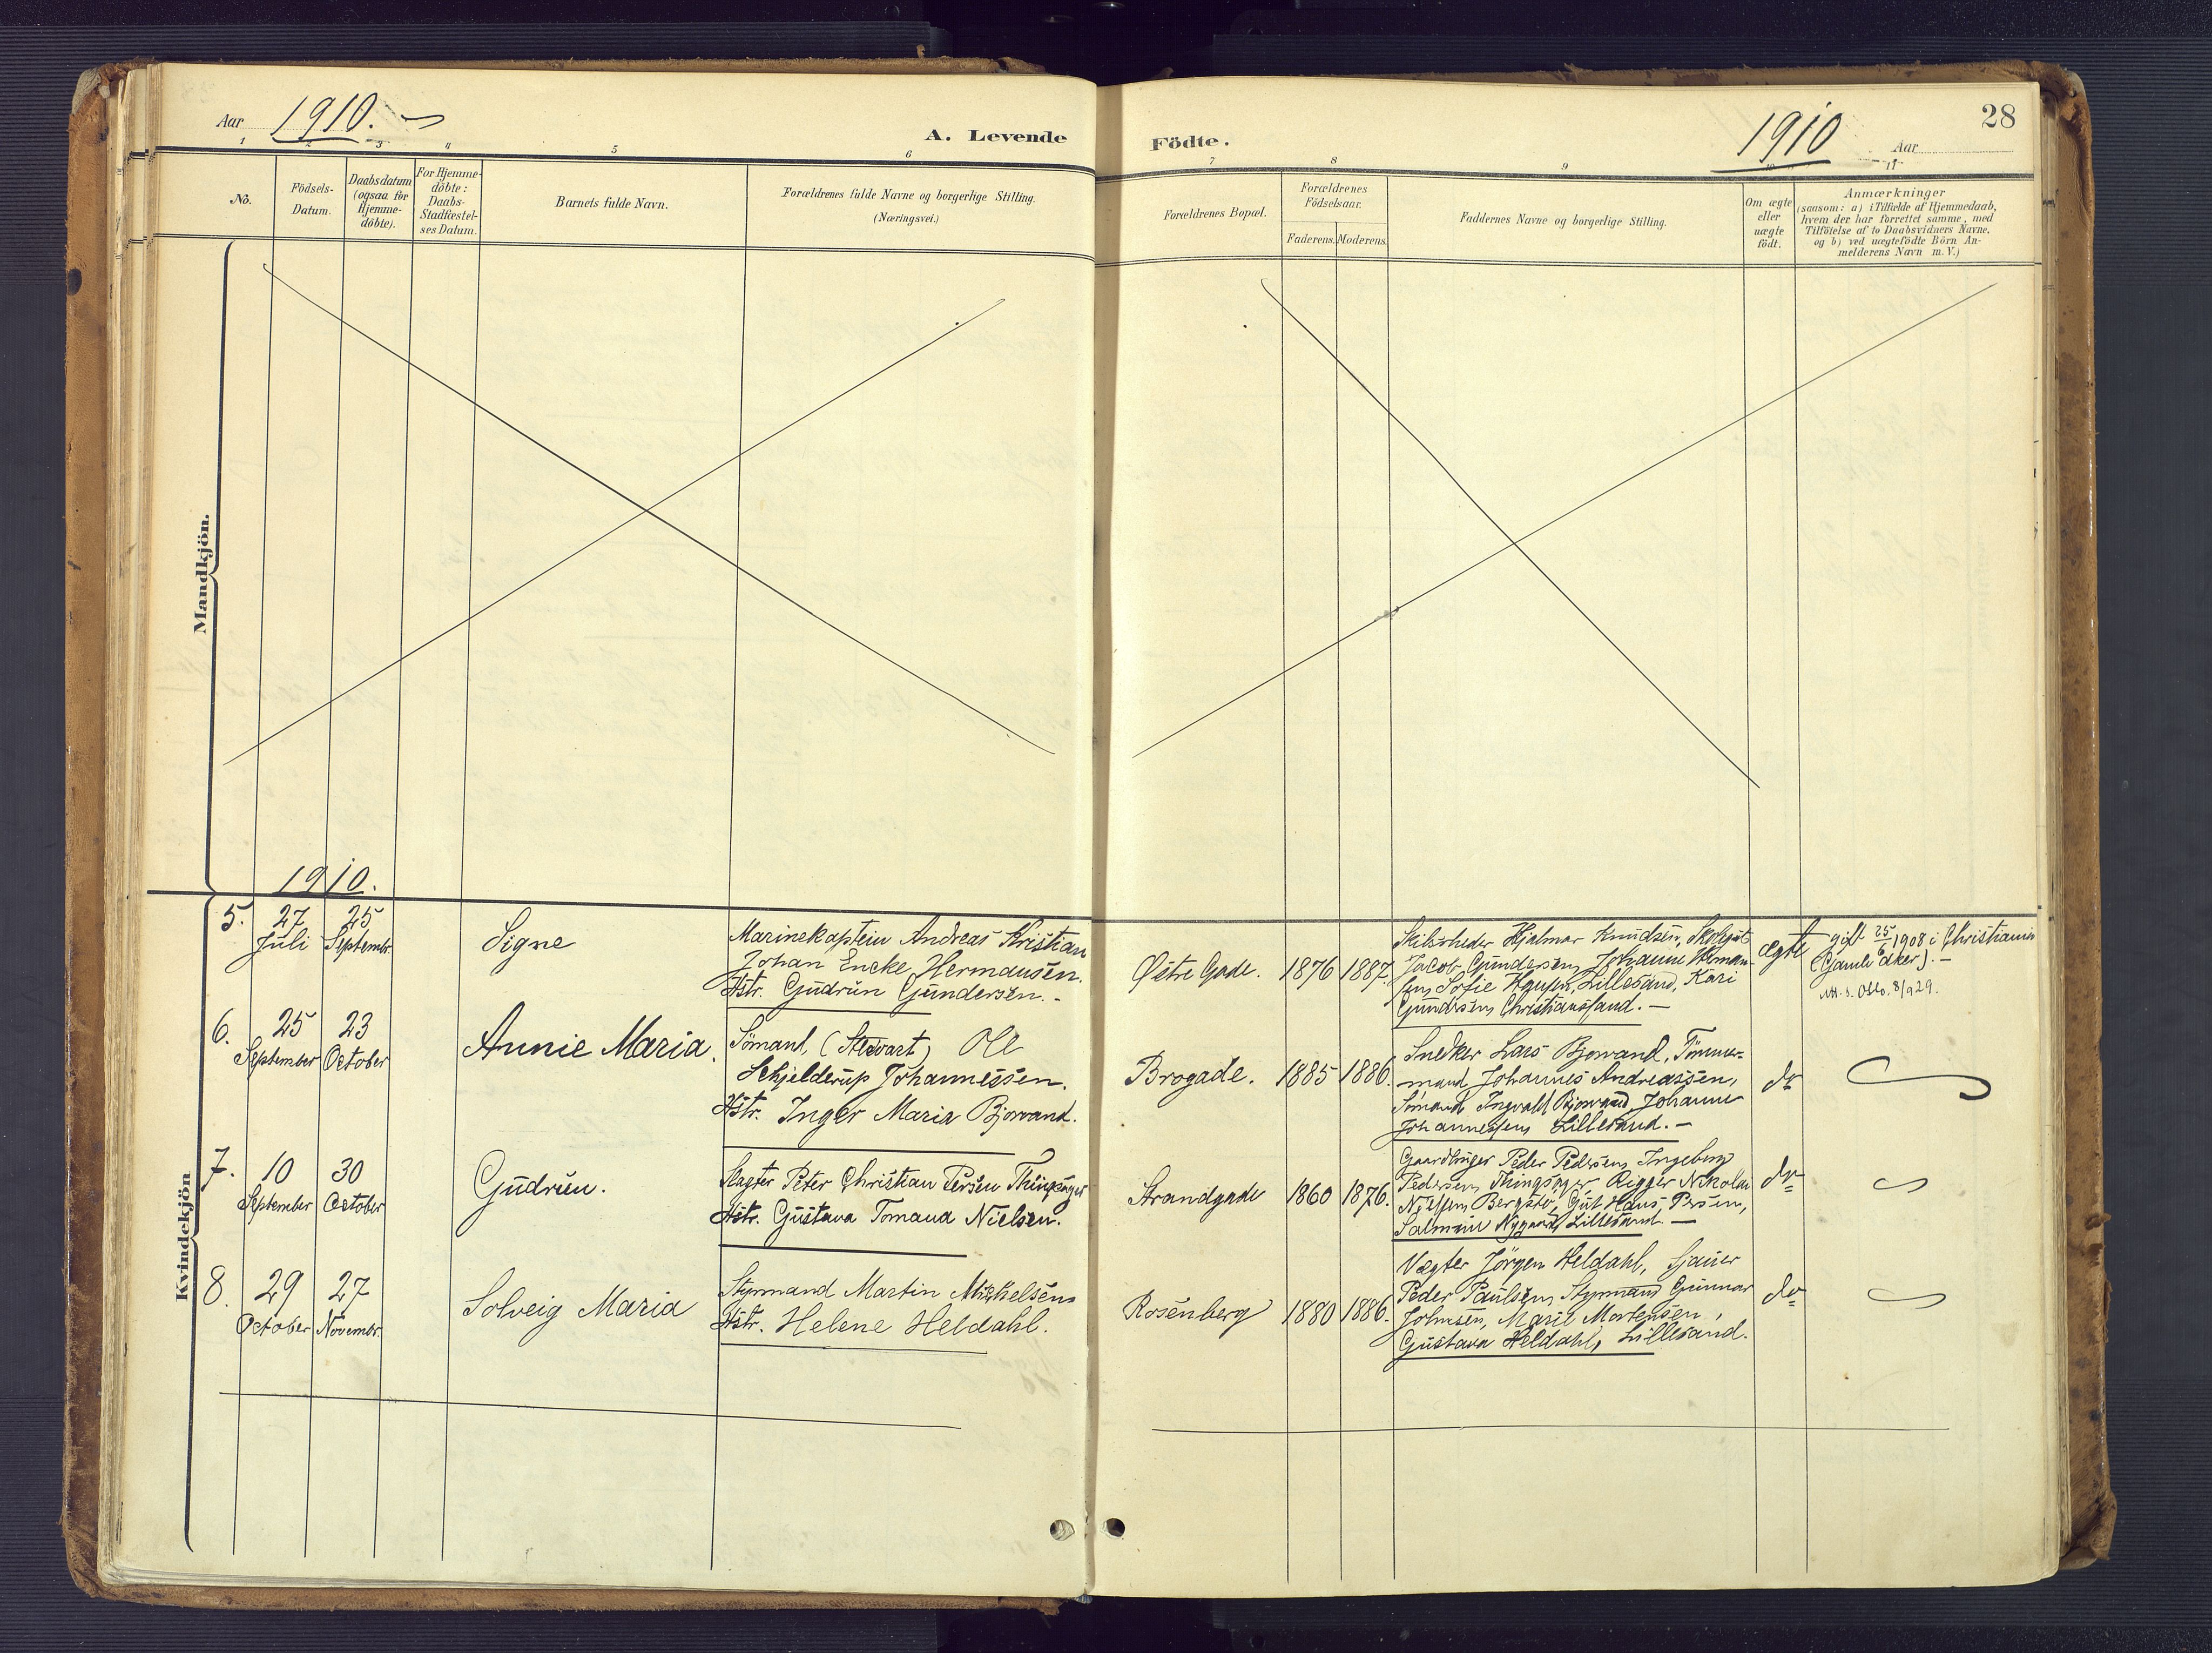 Aar 1910.
A. Levende
Födte.
1910
Aar
28
1 2 3 4 5 6 7 8 9 10 11
No.
Födsels-
Datum.
Daabsdatum
(ogsaa for
Hjemme-
döbte).
For Hjemme-
döbte:
Daabs-
Stadfæstel-
ses Datum.
Barnets fulde Navn.
Forældrenes fulde Navne og borgerlige Stilling.
(Næringsvei.)
Forældrenes Bopæl.
Forældrenes
Födselsaar.
Faderens. Moderens.
Faddernes Navne og borgerlige Stilling.
Om ægte
eller
uægte
födt.
Anmærkninger
(saasom: a) i Tilfælde af Hjemmedaab,
hvem der har forrettet samme, med
Tilföielse af to Daabsvidners Navne,
og b) ved uægtefödte Börn An-
melderens Navn m. V.)
Mandkjön.
1910.
Kvindekjön
5.
27
Juli
25
Septembr.
Signe
Marinekaptein Andreas Kristian
Johan Encke Hermansen.
Hstr. Gudrun Gundersen.-
Østre Gade.
1876
1887
Skibsrheder Hjalmar Knudsen,
Jacob Gundersen, Johanne Herman-
sen, Sofie Lillesand, Kari
Gundersen Christianssand.-
ægte
gift 25/6 1908 i Christiania
(Gamle Aker).-
Oslo. 8/929.
6.
25
September
23
October
Annie Maria.
Sömand, (Stewart) Ole
Schjelderup Johannessen.
Hstr. Inger Maria Bjorvand.
Brogade.
1885
1886.
Snedker Lars Bjorvand, Tömmer-
mand Johannes Andreassen,
Sömand Ingvald Bjorvand, Johanne
Johannessen, Lillesand.-
do
7.
10
September
30
October
Gudrun.
Slagter Peter Christian Persen Thingsager
Hstr. Gustava Tomana Nielsen.
Strandgade
1860
1876.
Gaardbruger Peder Pedersen, Ingeborg
Pedersen, Thingsager, Rigger Nikolai
Nielsen, Bergstö, Gut Hans Persen,
Nygaard, Lillesand.-
do
8.
29
October
27
Novembr.
Solveig Maria
Styrmand Martin Mikkelsen
Hstr. Helene Heldahl.
Rosenberg
1880
1886.
Vægter Jörgen Heldahl, Sjauer
Peder Paulsen, Styrmand Gunnar
Johnsen, Marie Mortensen,
Gustava Heldahl, Lillesand.
do